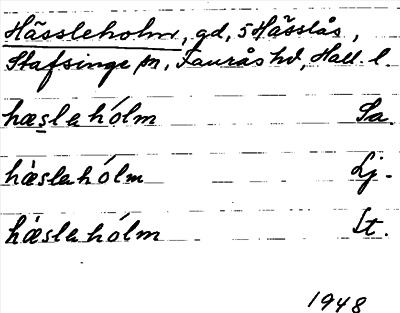 Hässleholm, gd, 5 Hässlås,
Stafsinge sn, Faurås hd, Hall. l.
hæslahólm Sa.
hæ̀slahólm Lj.
hæ̀slahólm St.
1948